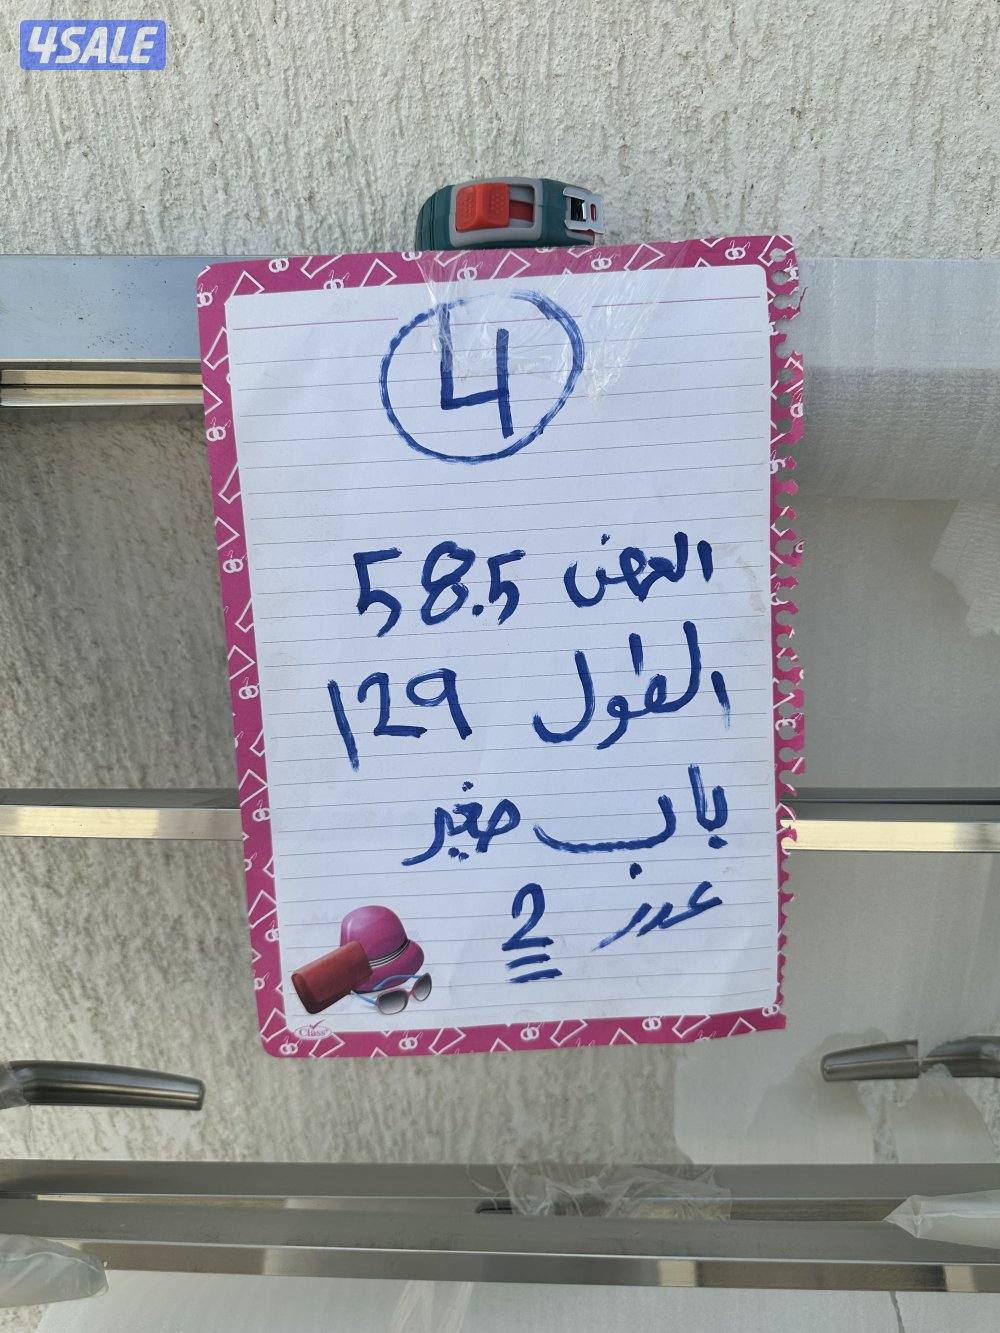 4SALE
4
العرض 58.5
الطول 129
باب صغير
عدد 2
Class